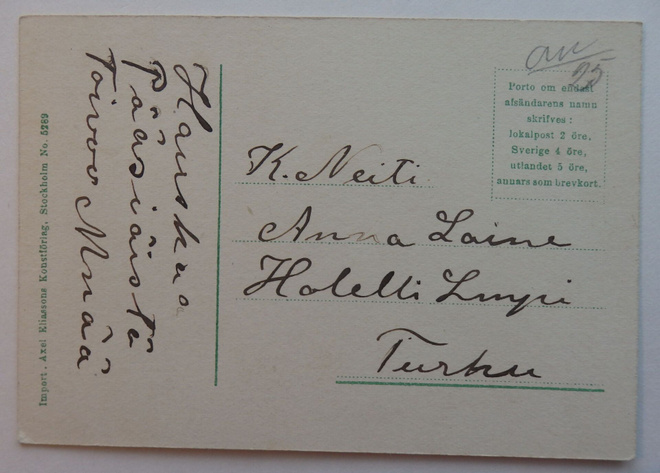 Hauskaa
Pääsiäistä
Toivoo Minää
an
25
Porto om endast
afsändarens namn
skrifves:
lokalpost 2 öre,
Sverige 4 öre,
utlandet 5 öre,
annars som brevkort.
K. Neiti
Anna Laine
Hotelli
Turku
Import. Axel Eliassons Konstförlag, Stockholm No. 5289